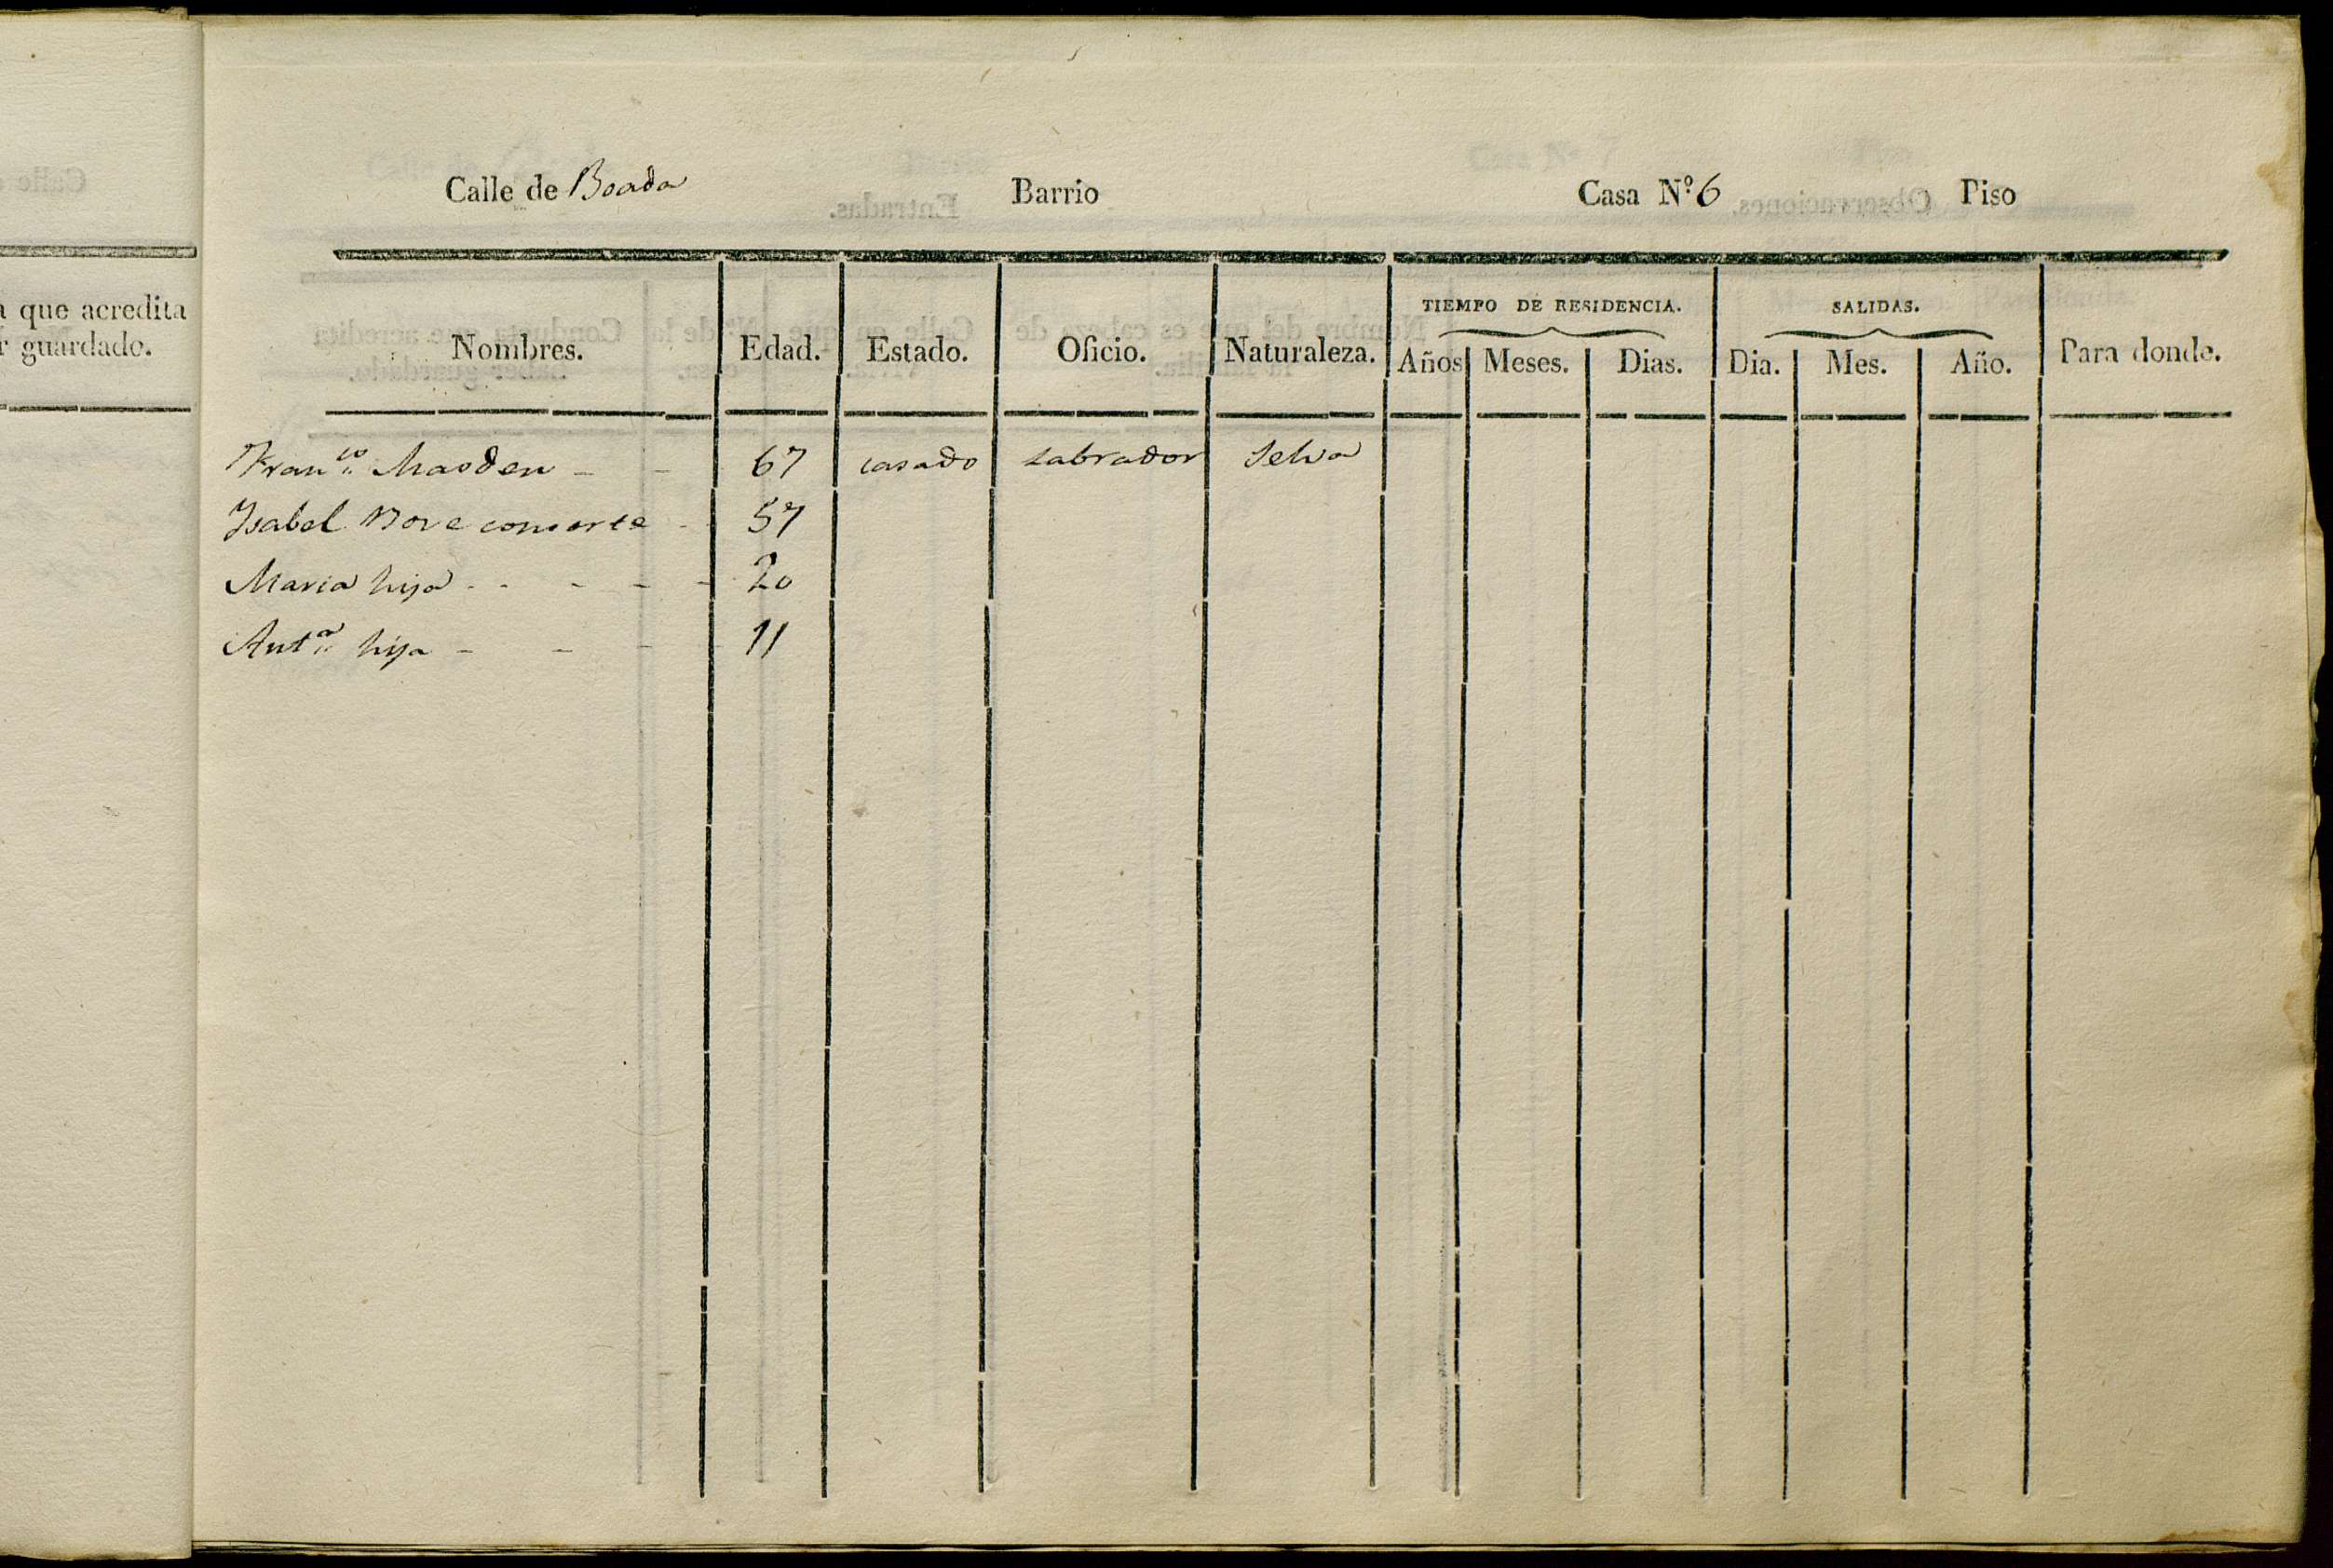 a que acredita
r guardado.
Calle de Boada Barrio Casa N.º 6 Piso
TIEMPO DE RESIDENCIA. SALIDAS.
Nombres. Edad. Estado. Oficio. Naturaleza. Años Meses. Dias. Dia. Mes. Año. Para donde.
Fran.co Masdeu - - 67 casado Labrador Selva
Ysabel Bove consorte - 57
Maria hija - - - - - 20
Ant.a hija - - - - 11